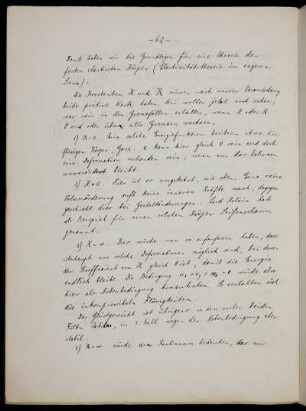 - 62 -
Damit haben wir die Grundlagen für eine Theorie der
festen elastischen Körper (Elastizitätstheorie im engeren
Sinn).
Die Konstanten H und K müssen nach unserer Voraussetzung
beide positive Werte haben. Wir wollen jetzt noch sehen,
was wir in den Grenzfällen erhalten, wenn H oder K
0 wird oder über alle Grenzen wachsen.
1) H=0. Eine solche Energiefunktion besitzen etwa die
flüssigen Körper, Gase. E kann hier gleich 0 sein und doch
eine Deformation vorhanden sein, wenn nur das Volumen
unverändert bleibt.
2) K=0. Hier ist es umgekehrt, wie oben. Eine reine
Volumänderung ruft keine inneren Kräfte wach, dagegen
geschieht dies bei Gestaltänderungen. Lord Kelvin hat
als Beispiel für einen solchen Körper Seifenschaum
genannt.
3) K=∞. Dies würde man so aufzufassen haben, dass
überhaupt nur solche Deformationen möglich sind, bei denen
der Koeffizient von K gleich 0 ist, damit die Energie
endlich bleibt. Die Bedingung
müsste also
hier als Nebenbedingung hinzutreten. So verhalten sich
die inkompressibeln Flüssigkeiten.
Das Gleichgewicht ist übrigens in den ersten beiden
Fällen labil, im 3. Fall wegen der Nebenbedingung aber
stabil.
4) H=∞ würde dann bedeuten, dass nur